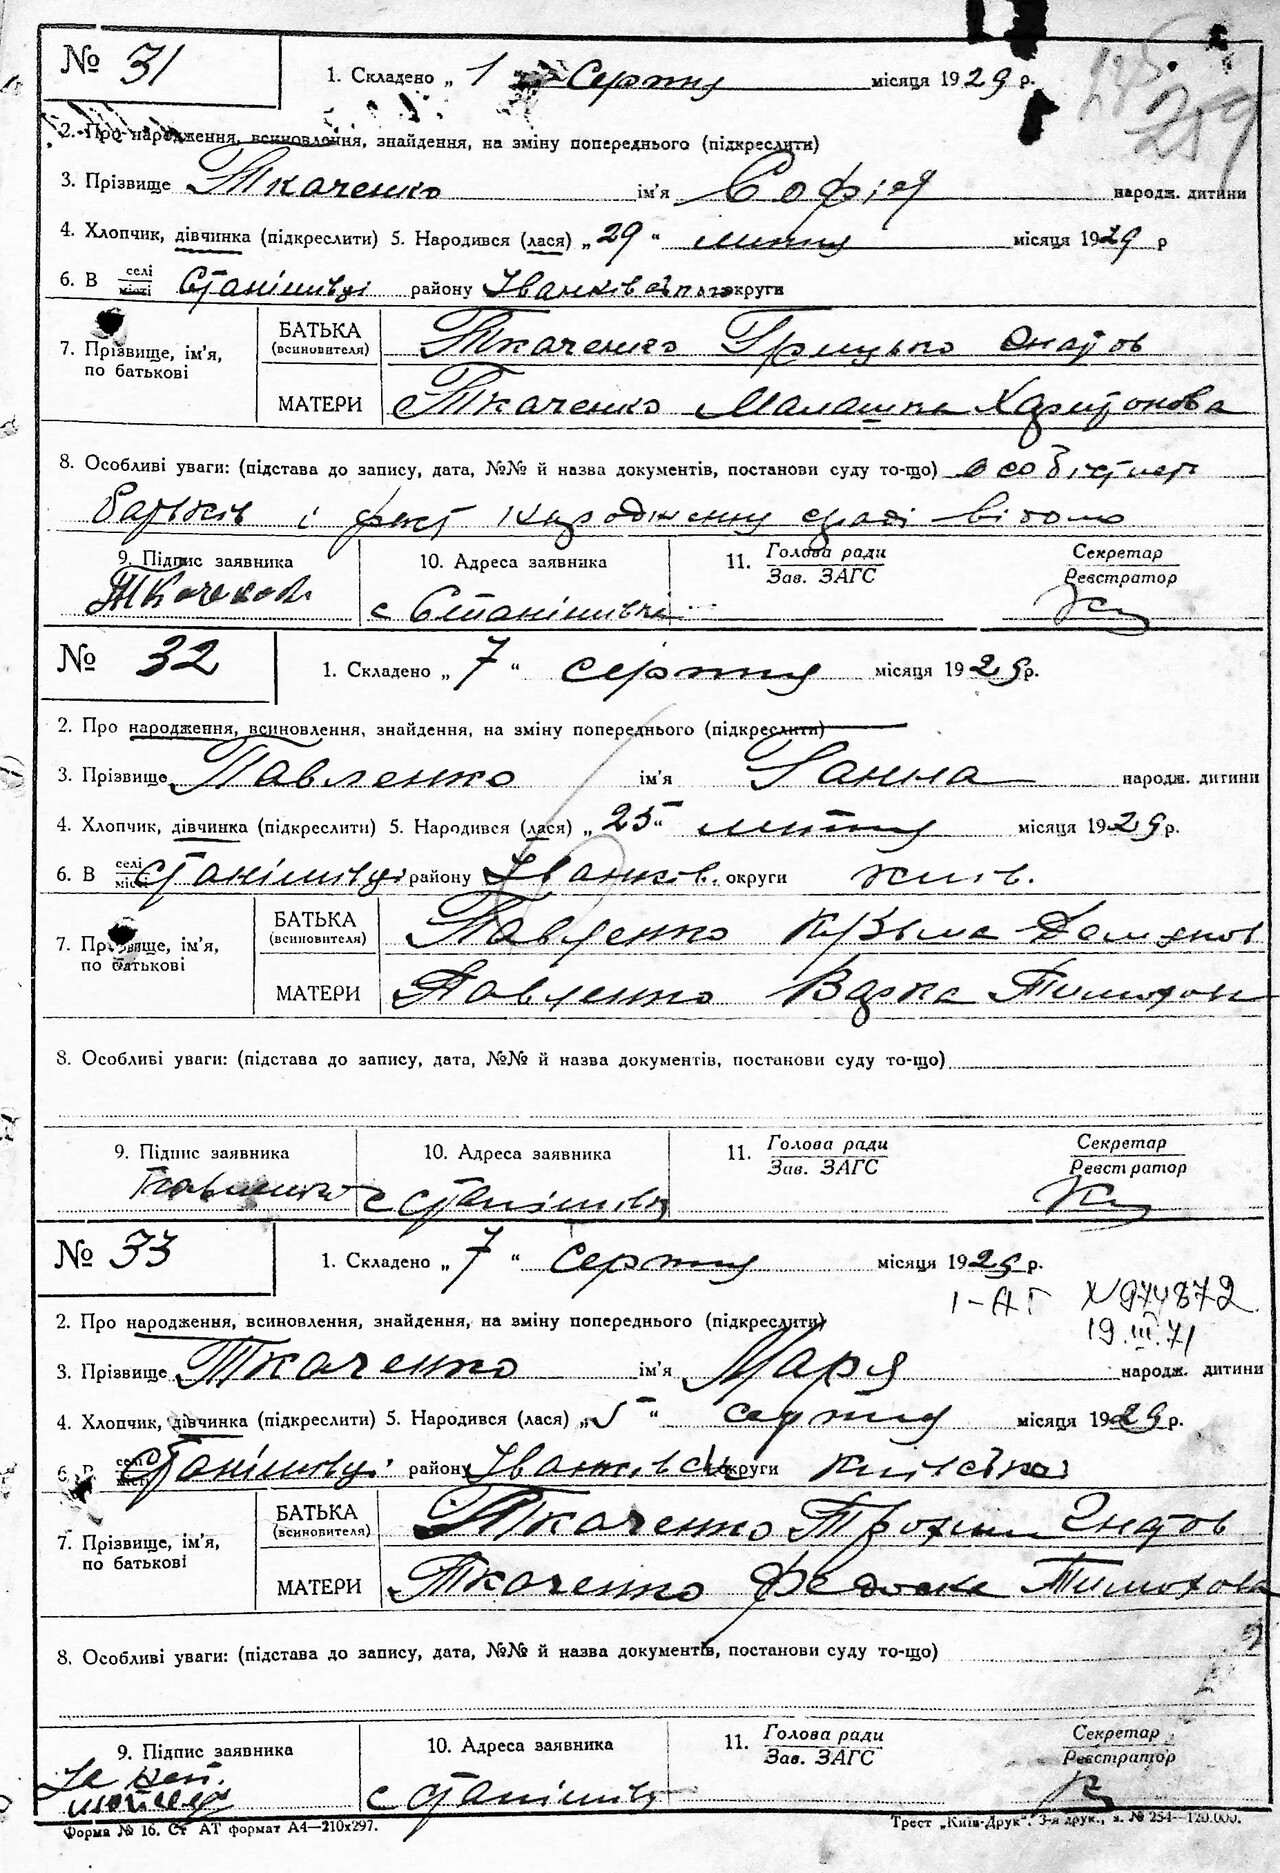 № 31
1. Складено „ 1 " серпня місяця 1929 р.
259
2. Про народження, всиновлення, знайдення, на зміну попереднього (підкреслити)
3. Прізвище Ткаченко ім'я Софія народж. дитини
4. Хлопчик, дівчинка (підкреслити) 5. Народився (лася) „ 29 " липня місяця 1929 р
6. В селі/місті Станішівці району Іванківськ округи
7. Прізвище, ім'я, по батькові
БАТЬКА (всиновителя) Ткаченко Грицько Гнатов
МАТЕРИ Ткаченко Малашка Харитонова
8. Особливі уваги: (підстава до запису, дата, №№ й назва документів, постанови суду то-що) особістість
батьків і факт народження сраді відомо
9. Підпис заявника 10. Адреса заявника 11. Голова ради/Зав. ЗАГС Секретар/Реєстратор
с Станішівці
№ 32
1. Складено „ 7 " серпня місяця 1929 р.
2. Про народження, всиновлення, знайдення, на зміну попереднього (підкреслити)
3. Прізвище Павленко ім'я Ганна народж. дитини
4. Хлопчик, дівчинка (підкреслити) 5. Народився (лася) „ 25 " липня місяця 1929 р.
6. В селі/місті Станішівці району Іванків. округи Київ.
7. Прізвище, ім'я, по батькові
БАТЬКА (всиновителя) Павленко Кузьма Демянов
МАТЕРИ Павленко Варка Тимохов
8. Особливі уваги: (підстава до запису, дата, №№ й назва документів, постанови суду то-що)
9. Підпис заявника 10. Адреса заявника 11. Голова ради/Зав. ЗАГС Секретар/Реєстратор
Павленко с Станішівці
№ 33
1. Складено „ 7 " серпня місяця 1929 р.
I-АГ № 974872
19.III.71
2. Про народження, всиновлення, знайдення, на зміну попереднього (підкреслити)
3. Прізвище Ткаченко ім'я Маря народж. дитини
4. Хлопчик, дівчинка (підкреслити) 5. Народився (лася) „ 5 " серпня місяця 1929 р.
6. В селі/місті Станішівці району Іванківськ округи Київська
7. Прізвище, ім'я, по батькові
БАТЬКА (всиновителя) Ткаченко Трохим Гнатов
МАТЕРИ Ткаченко Федоска Тимохова
8. Особливі уваги: (підстава до запису, дата, №№ й назва документів, постанови суду то-що)
9. Підпис заявника 10. Адреса заявника 11. Голова ради/Зав. ЗАГС Секретар/Реєстратор
с Станішівці
Форма № 16. Ст АТ формат А4—210х297. Трест „Київ-Друк". 3-я друк., з. № 254—120.000.